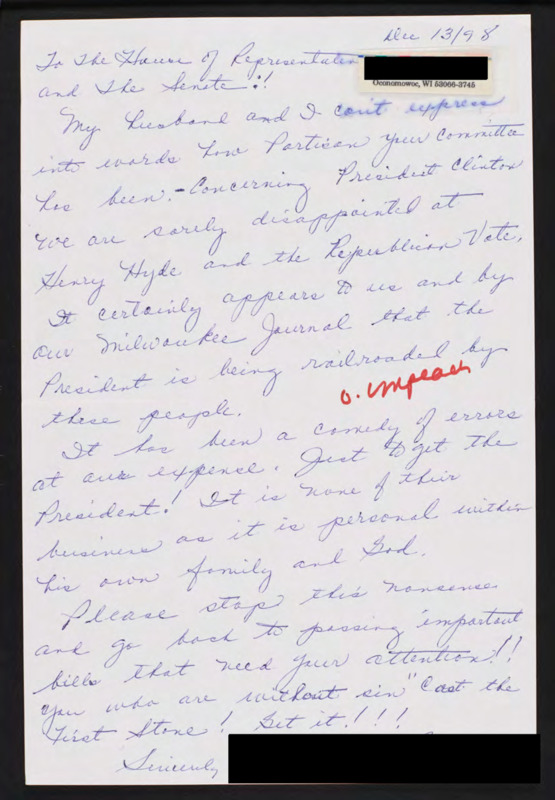 Dec 13/98
To The House of Representatives
and The Senate:!!
Oconomowoc, WI 53066-3745
My husband and I can't express
into words how Partisan your Committee
has been. - Concerning President Clinton
We are sorely disappointed at
Henry Hyde and the Republican Vote.
It certainly appears to us and by
our Milwaukee Journal that the
President is being railroaded by
these people.
O. Impeach
It has been a comedy of errors
at our expense. Just to get the
President! It is none of their
business as it is personal within
his own family and God.
Please stop this nonsense
and go back to passing important
bills that need your attention!!
You who are without sin" Cast the
First Stone! Get it!!!
Sincerely